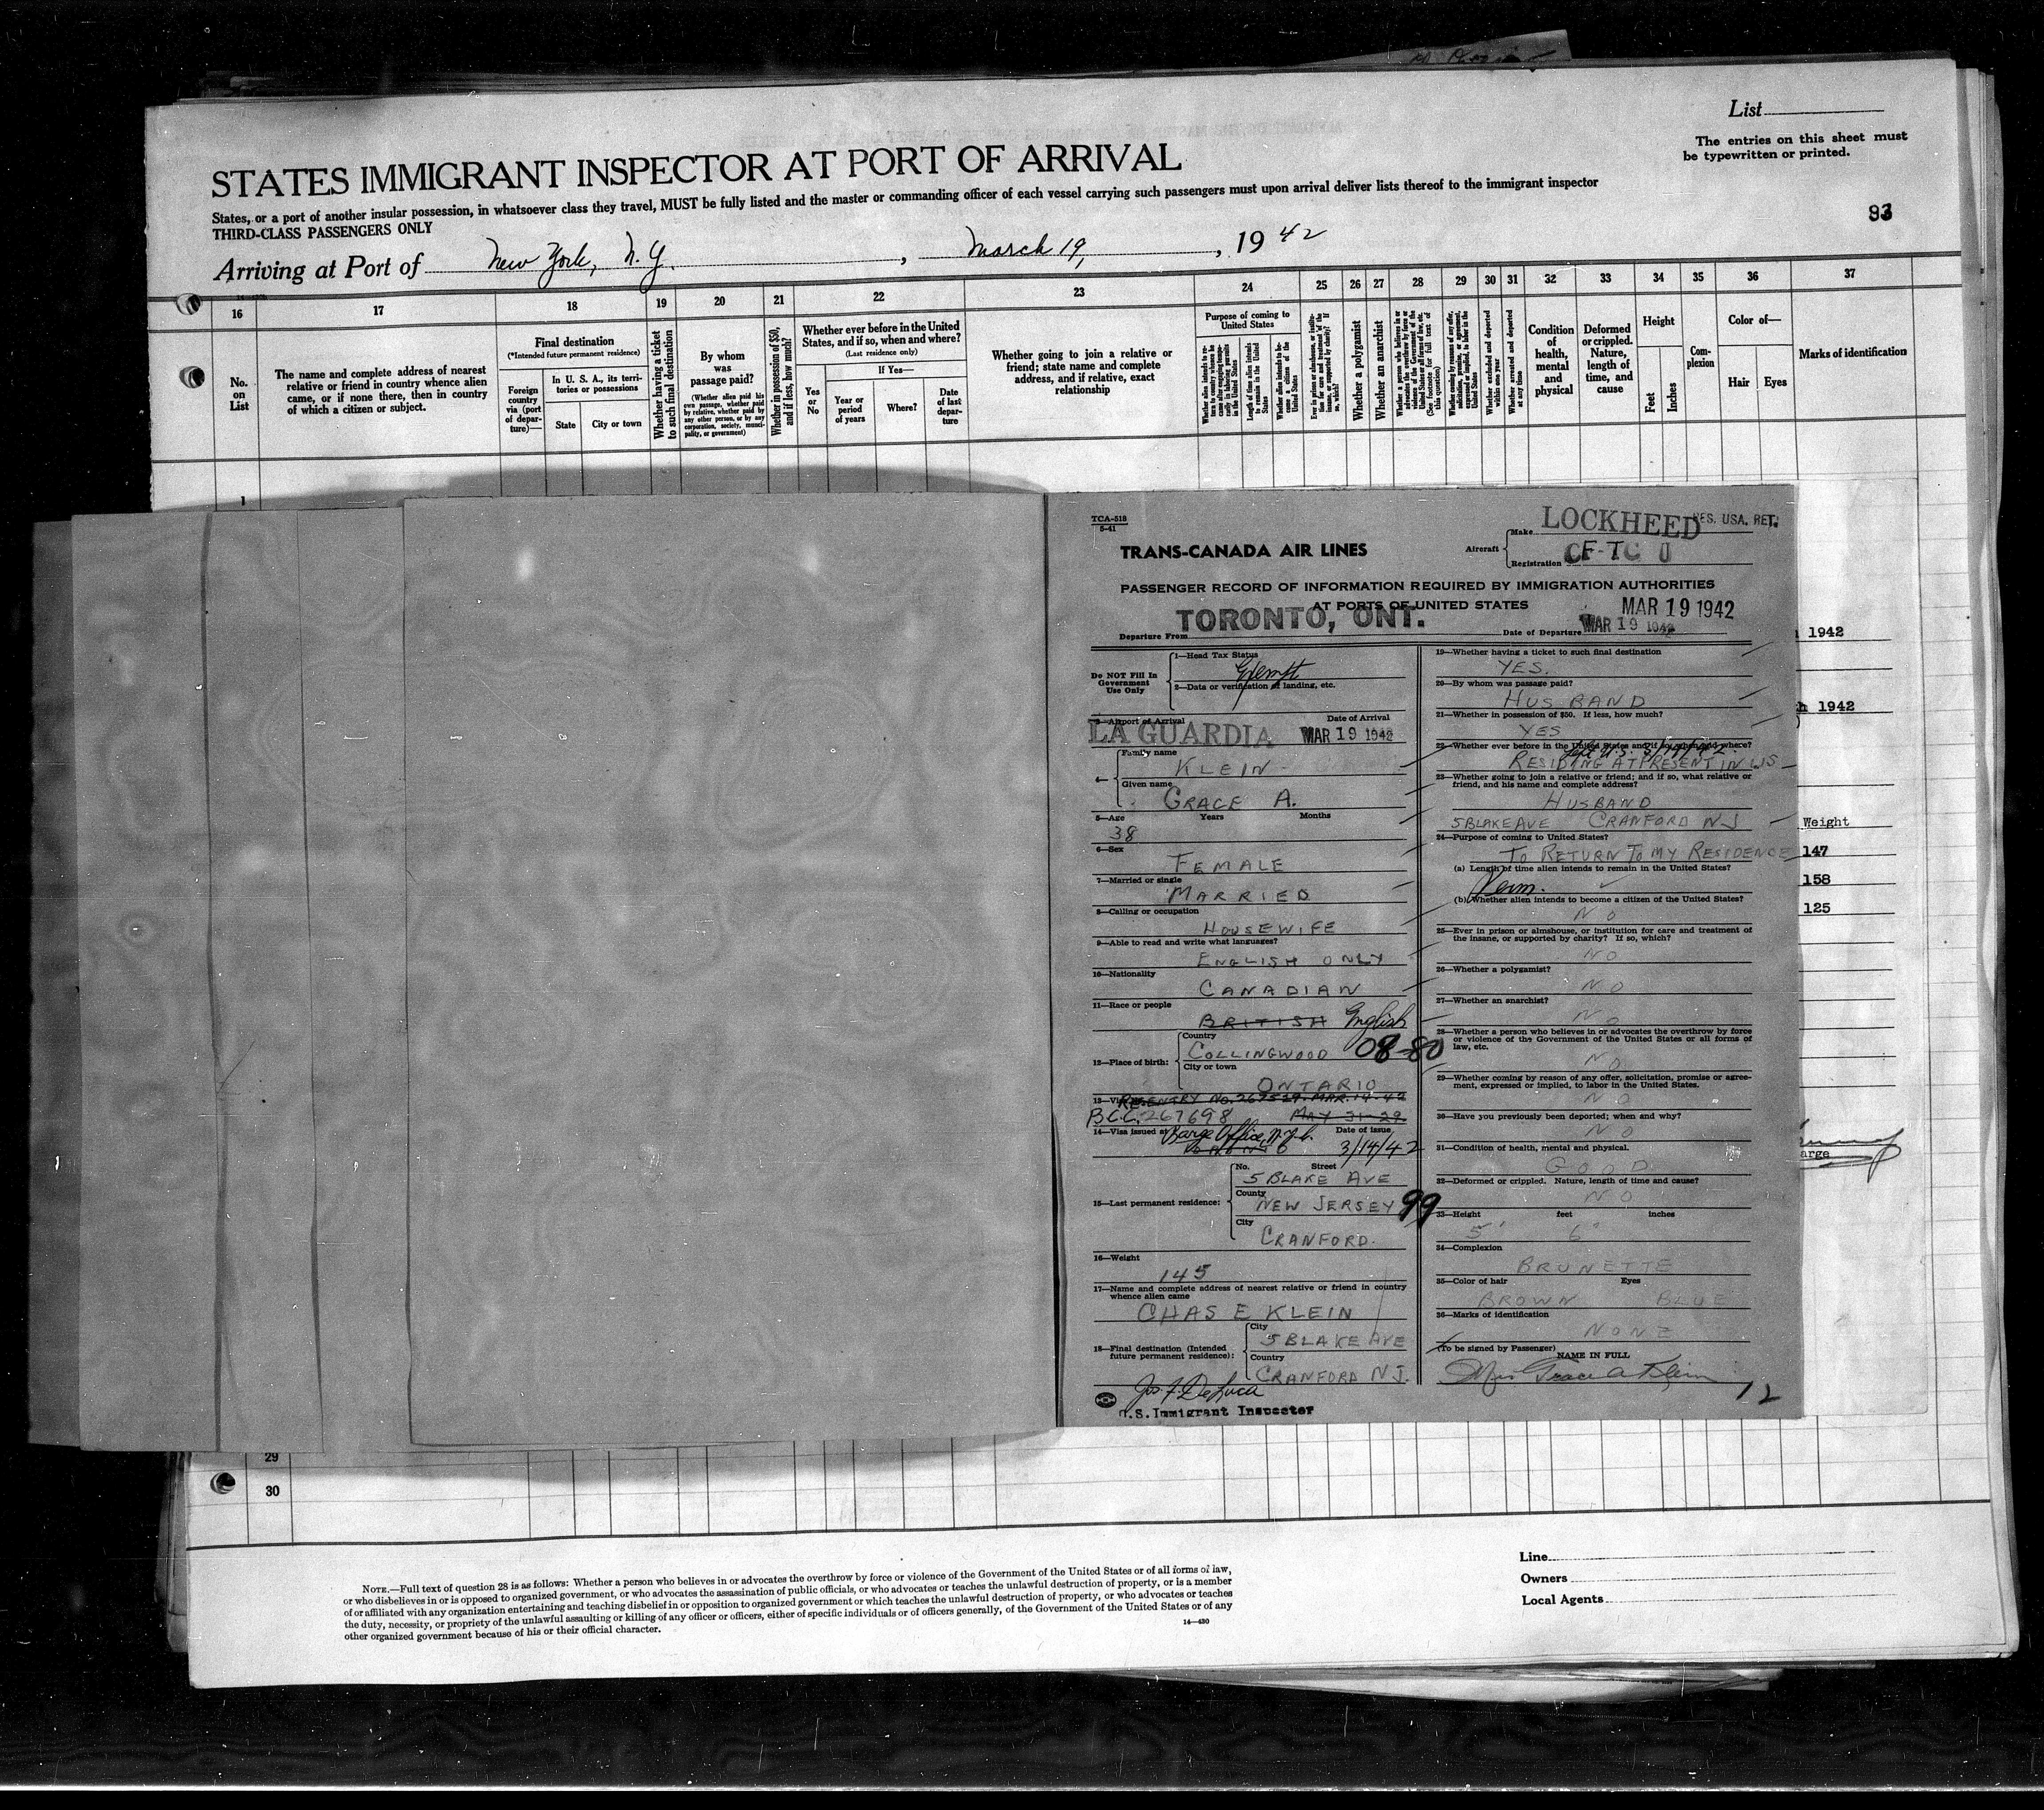 List
The entries on this sheet must
be typewritten or printed.
STATES IMMIGRANT INSPECTOR AT PORT OF ARRIVAL
States, or a port of another insular possession, in whatsoever class they travel, MUST be fully listed and the master or commanding officer of each vessel carrying such passengers must upon arrival deliver lists thereof to the immigrant inspector
THIRD-CLASS PASSENGERS ONLY
83
Arriving at Port of New York, N.Y., March 19, 1942
16 17 18 19 20 21 22 23 24 25 26 27 28 29 30 31 32 33 34 35 36 37
No.
on
List
The name and complete address of nearest
relative or friend in country whence alien
came, or if none there, then in country
of which a citizen or subject.
Final destination
(*Intended future permanent residence)
Foreign
country
via (port
of depar-
ture)—
In U. S. A., its terri-
tories or possessions
State
City or town
Whether having a ticket
to such final destination
By whom
was
passage paid?
(Whether alien paid his
own passage, whether paid
by relative, whether paid by
any other person, or by any
corporation, society, munici-
pality, or government)
Whether in possession of $50,
and if less, how much?
Whether ever before in the United
States, and if so, when and where?
(Last residence only)
Yes
or
No
If Yes—
Year or
period
of years
Where?
Date
of last
depar-
ture
Whether going to join a relative or
friend; state name and complete
address, and if relative, exact
relationship
Purpose of coming to
United States
Length of time alien intends
to remain in the United
States
Whether alien intends to be-
come a citizen of the
United States
Whether a polygamist
Whether an anarchist
Whether arrested and deported
at any time
Condition
of
health,
mental
and
physical
Deformed
or crippled.
Nature,
length of
time, and
cause
Height
Feet
Inches
Com-
plexion
Color of—
Hair
Eyes
Marks of identification
1
TCA-518
5-41
TRANS-CANADA AIR LINES
Aircraft
Make LOCKHEED
RES. USA. RET.
Registration CF-TC U
PASSENGER RECORD OF INFORMATION REQUIRED BY IMMIGRATION AUTHORITIES
AT PORTS OF UNITED STATES
MAR 19 1942
Departure From TORONTO, ONT.
Date of Departure MAR 19 1942
Do NOT Fill In
Government
Use Only
1—Head Tax Status
Exempt
2—Data or verification of landing, etc.
3—Airport of Arrival
Date of Arrival
LA GUARDIA MAR 19 1942
4—
Family name
KLEIN
Given name
GRACE A.
5—Age Years Months
38
6—Sex
FEMALE
7—Married or single
MARRIED
8—Calling or occupation
HOUSEWIFE
9—Able to read and write what languages?
ENGLISH ONLY
10—Nationality
CANADIAN
11—Race or people
BRITISH English
12—Place of birth:
Country
COLLINGWOOD 08-80
City or town
ONTARIO
13—Visa
RE-ENTRY No. 267529 MAR. 14-42
B.C.C. 267698 MAY 31-29
14—Visa issued at Barge Office, N.Y.C.
Date of issue
3/14/42
15—Last permanent residence:
No. Street
5 BLAKE AVE
County
NEW JERSEY 99
City
CRANFORD.
16—Weight
145
17—Name and complete address of nearest relative or friend in country
whence alien came
CHAS E KLEIN
18—Final destination (Intended
future permanent residence):
City
5 BLAKE AVE
Country
CRANFORD N.J.
Jos. F. DeLuca
U.S. Immigrant Inspector
19—Whether having a ticket to such final destination
YES.
20—By whom was passage paid?
HUSBAND
21—Whether in possession of $50. If less, how much?
YES
22—Whether ever before in the United States and if so, when and where?
RESIDING AT PRESENT IN US
23—Whether going to join a relative or friend; and if so, what relative or
friend, and his name and complete address?
HUSBAND
5 BLAKE AVE CRANFORD N J
24—Purpose of coming to United States?
TO RETURN TO MY RESIDENCE
(a) Length of time alien intends to remain in the United States?
Perm.
(b) Whether alien intends to become a citizen of the United States?
NO
25—Ever in prison or almshouse, or institution for care and treatment of
the insane, or supported by charity? If so, which?
NO
26—Whether a polygamist?
NO
27—Whether an anarchist?
NO
28—Whether a person who believes in or advocates the overthrow by force
or violence of the Government of the United States or all forms of
law, etc.
NO
29—Whether coming by reason of any offer, solicitation, promise or agree-
ment, expressed or implied, to labor in the United States.
NO
30—Have you previously been deported; when and why?
NO
31—Condition of health, mental and physical.
GOOD
32—Deformed or crippled. Nature, length of time and cause?
NO
33—Height feet inches
5' 6"
34—Complexion
BRUNETTE
35—Color of hair Eyes
BROWN BLUE
36—Marks of identification
NONE
(To be signed by Passenger)
NAME IN FULL
Mrs Grace A Klein
12
1942
h 1942
Weight
147
158
125
arge
29
30
Line
Owners
Local Agents
NOTE.—Full text of question 28 is as follows: Whether a person who believes in or advocates the overthrow by force or violence of the Government of the United States or of all forms of law,
or who disbelieves in or is opposed to organized government, or who advocates the assassination of public officials, or who advocates or teaches the unlawful destruction of property, or is a member
of or affiliated with any organization entertaining and teaching disbelief in or opposition to organized government or which teaches the unlawful destruction of property, or who advocates or teaches
the duty, necessity, or propriety of the unlawful assaulting or killing of any officer or officers, either of specific individuals or of officers generally, of the Government of the United States or of any
other organized government because of his or their official character.
14—430